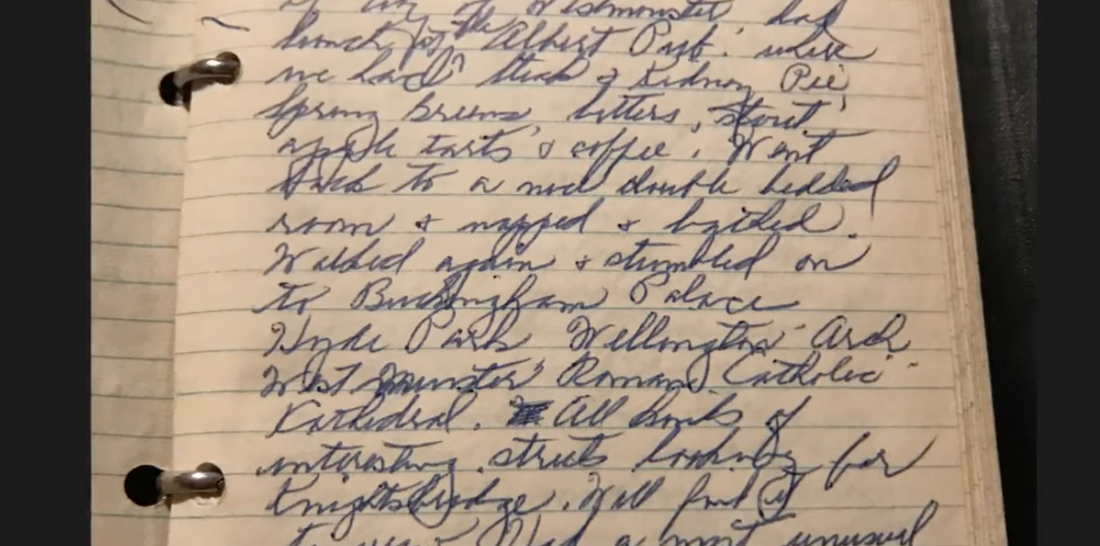 of City of Westminster had
lunch of the "Albert Pub". where
we had Steak & Kidney Pie,
Spring Greens bitters, stout,
apple tarts & coffee. Went
back to a nice double bedded
room & napped & bathed.
Walked again & stumbled on
to Buckingham Palace
Hyde Park Wellington Arch
West Munster Roman Catholic
Kathedral. All kinds of
interesting streets looking for
Knightsbridge. Will find it
Had a most unusual